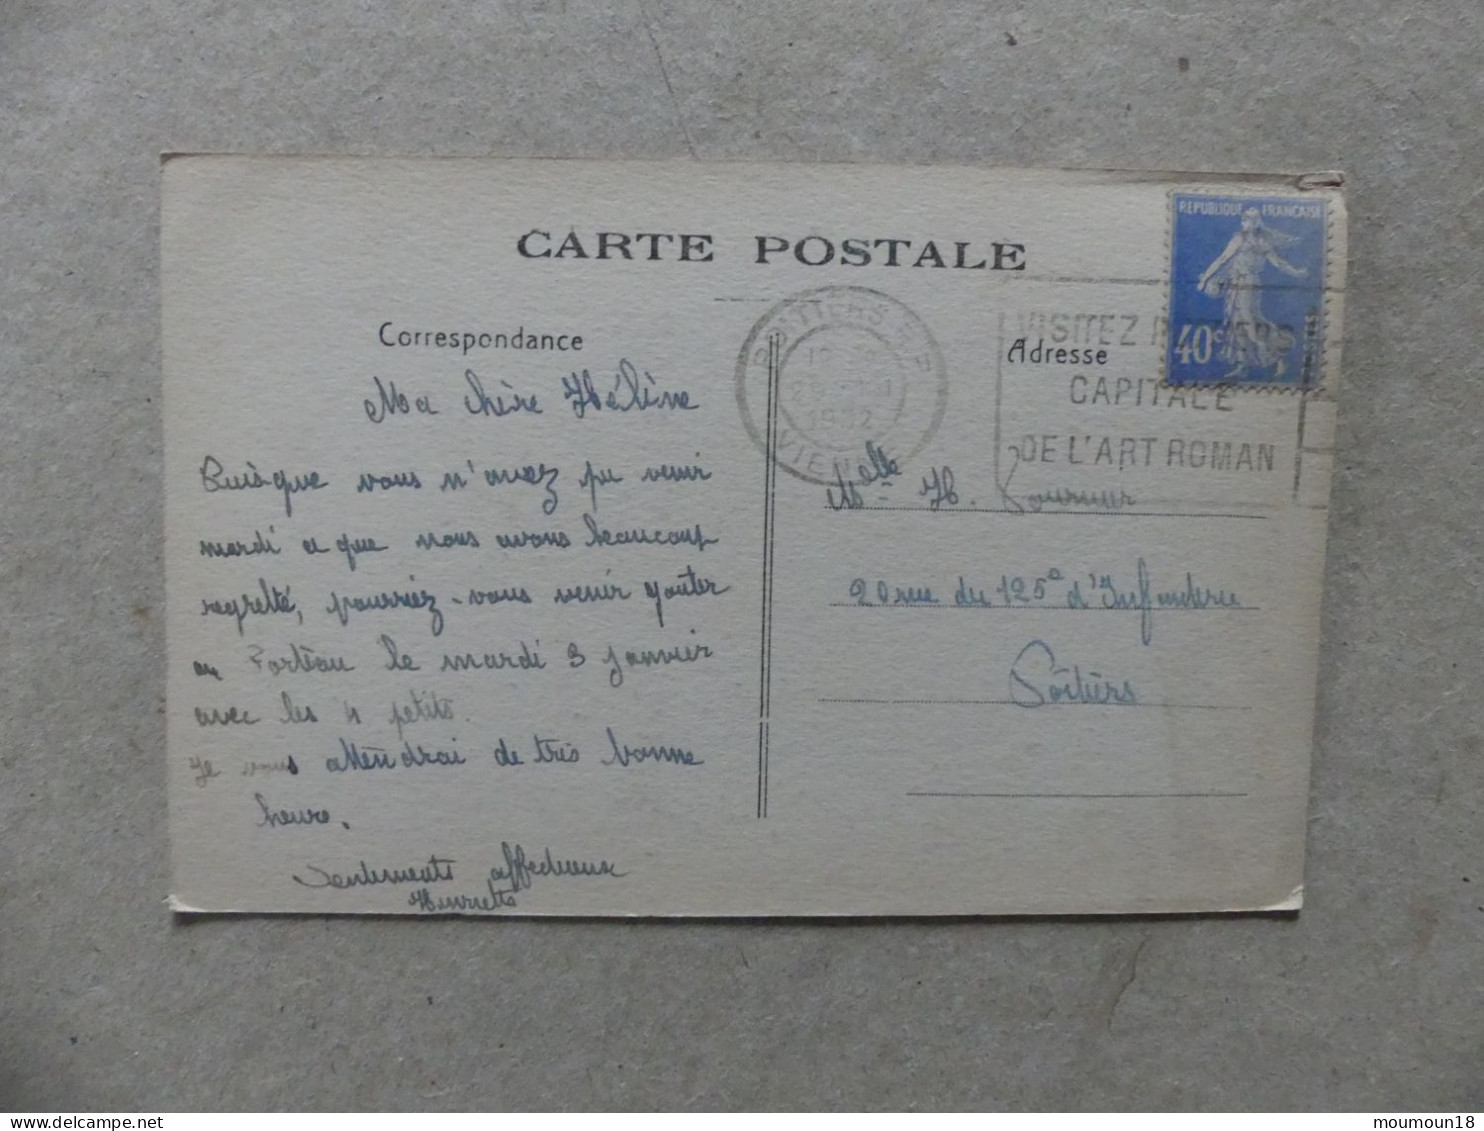 CARTE POSTALE
REPUBLIQUE FRANÇAISE
40c
POITIERS
1932
VIENNE
VISITEZ POITIERS
CAPITALE
DE L'ART ROMAN
Correspondance
Ma chère Hélène
Puisque vous n'avez pu venir
mardi ce que nous avons beaucoup
regretté, pourriez-vous venir goûter
au Porteau le mardi 3 janvier
avec les 4 petits.
Je vous attendrai de très bonne
heure.
Sentiments affectueux
Henriette
Adresse
Melle H. Fournier
20 rue du 125e d'Infanterie
Poitiers
moumoun18